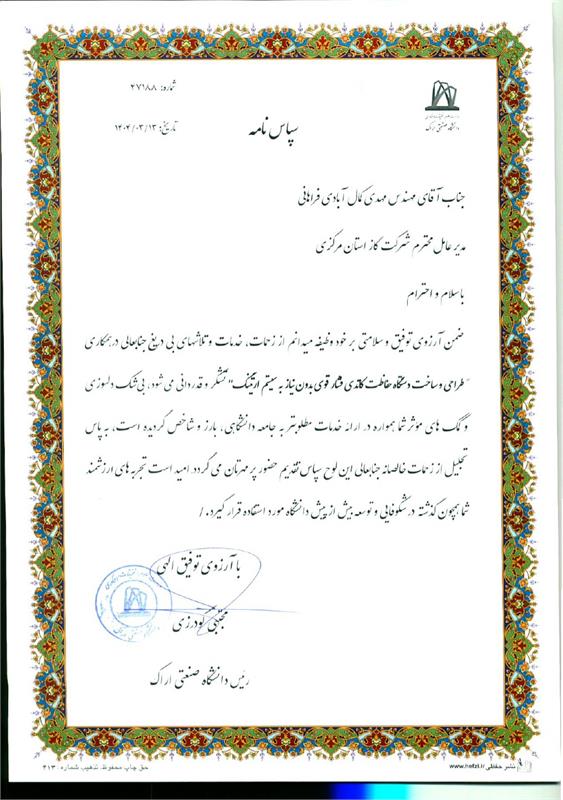 شماره: ۲۷۱۸۸
دانشگاه صنعتی اراک
تاریخ: ۱۴۰۴/۰۳/۱۳
سپاس نامه
جناب آقای مهندس مهدی کمال آبادی فراهانی
مدیرعامل محترم شرکت گاز استان مرکزی
باسلام و احترام
ضمن آرزوی توفیق و سلامتی بر خود وظیفه میدانم از زحمات، خدمات و تلاشهای بی دریغ جنابعالی درهمکاری
"طراحی و ساخت دستگاه حفاظت کاتدی فشار قوی بدون نیاز به سیستم ارتینگ" تشکر و قدردانی می شود، بی شک دلسوزی
و کمک های مؤثر شما همواره در ارائه خدمات مطلوبتر به جامعه دانشگاهی، بارز و شاخص گردیده است، به پاس
تجلیل از زحمات خالصانه جنابعالی این لوح سپاس تقدیم حضور پر مهرتان می گردد امید است تجربه های ارزشمند
شما همچون گذشته در شکوفایی و توسعه بیش از پیش دانشگاه مورد استفاده قرار گیرد. /
با آرزوی توفیق الهی
مجتبی گودرزی
رئیس دانشگاه صنعتی اراک
نشر حفظی www.hefzi.ir
حق چاپ محفوظ، تذهیب شماره: ۴۱۳